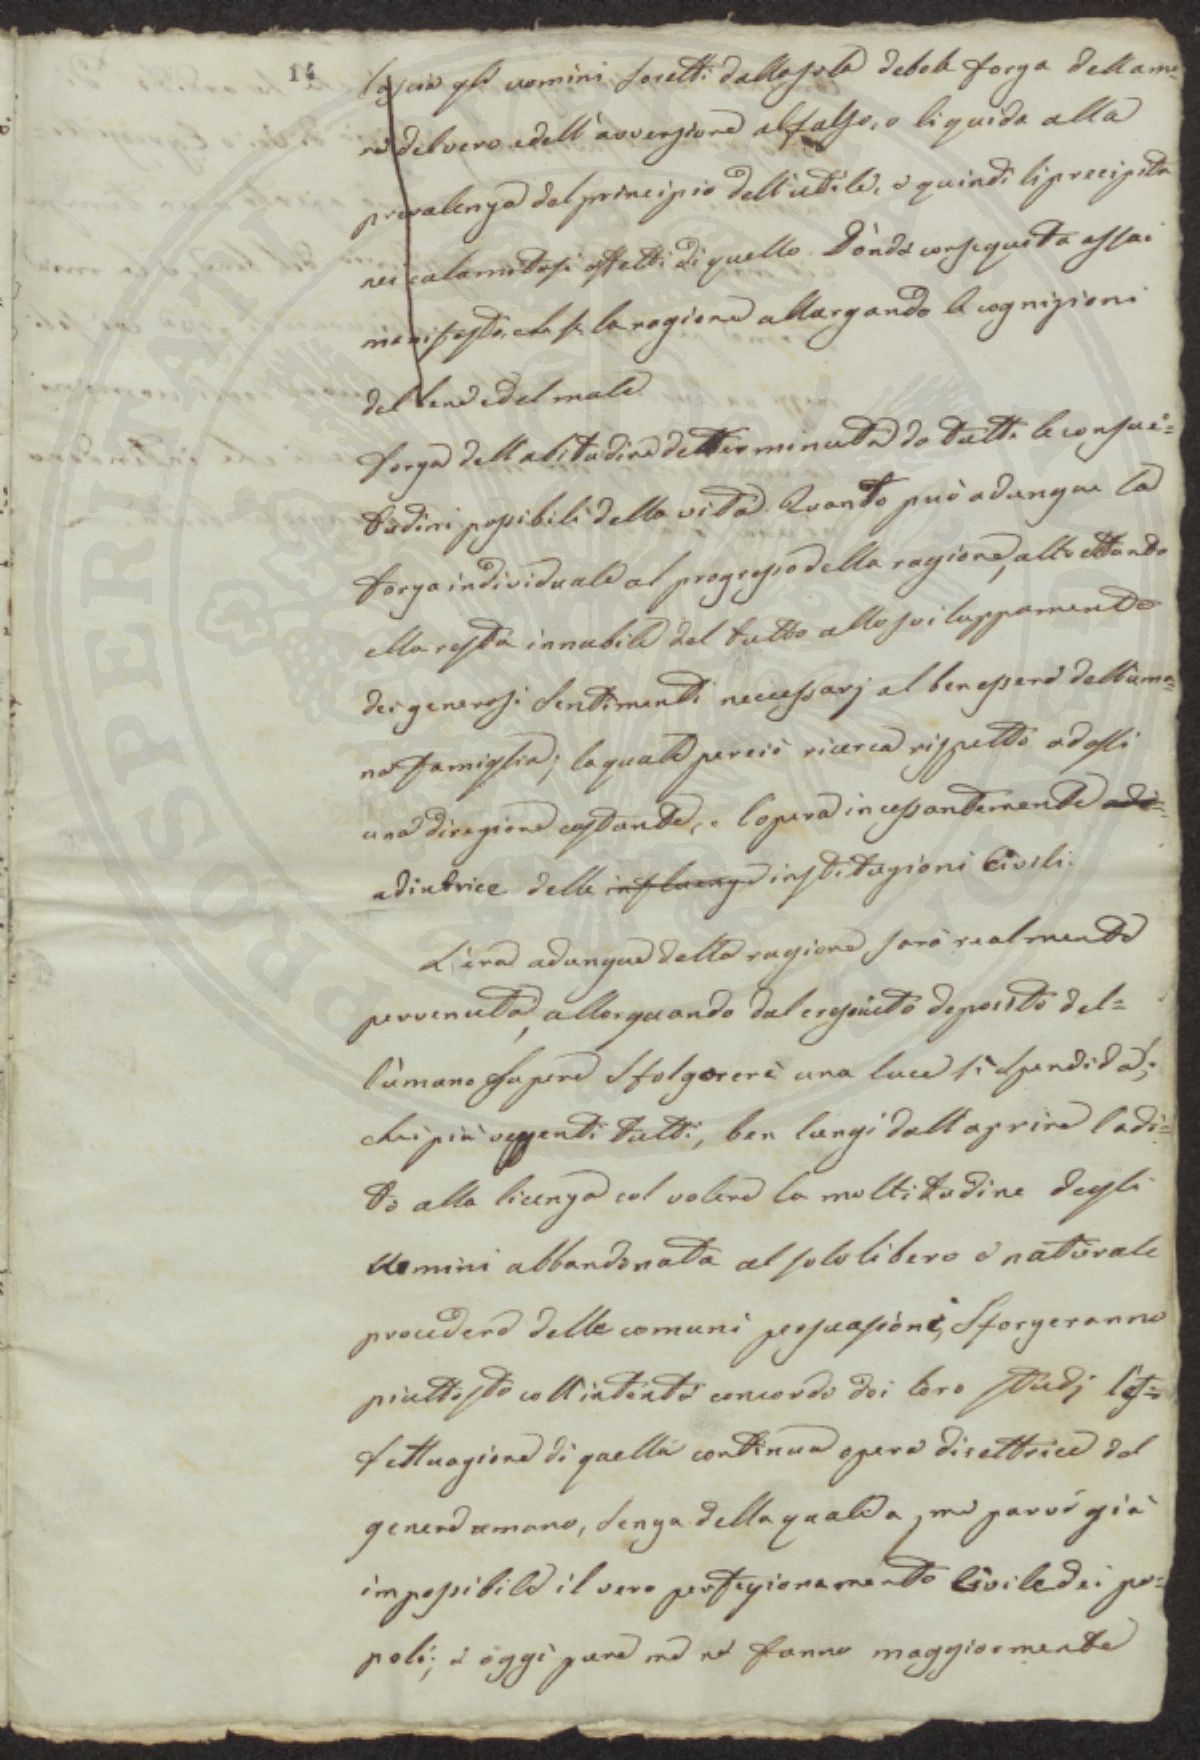 14
lascia gli uomini soretti dalla sola debole forza dell'amo=
re del vero e dell'avversione al falso, o liquida alla
prevalenza del principio dell'utile, e quindi li precipita
nei calamitosi effetti di quello. Donde conseguita assai
manifesto, che se la ragione allargando le cognizioni
del bene e del male
forza dell'abitudine determinata da tutte le consue=
tudini possibili della vita. Quanto può adunque la
forza individuale al progresso della ragione, altrettando
ella resta innabile del tutto allo sviluppamento
dei generosi sentimenti necessarj al ben essere dell'uma=
na famiglia; la quale perciò ricerca rispetto ad essi
una direzione costante, e l'opera incessantemente adi=
adiutrice delle influenze instituzioni Civili.
L'era adunque della ragione sarà realmente
pervenuta, allorquando dal cresciuto deposito del=
l'umano sapere sfolgorerà una luce sì spendida,
che i più veggenti tutti, ben lungi dall'aprire l'adi=
to alla licenza col volere la moltitudine degli
uomini abbandonata al solo libero e naturale
procedere delle comuni persuasioni, sforzeranno
piuttosto coll'intento concorde dei loro studj l'ef=
fettuazione di quella continua opera direttrice del
genere umano, senza della quale a me parve già
impossibile il vero perfezionamento Civile dei po=
poli; e oggi pure me ne fanno maggiormente
PROSPERITATI